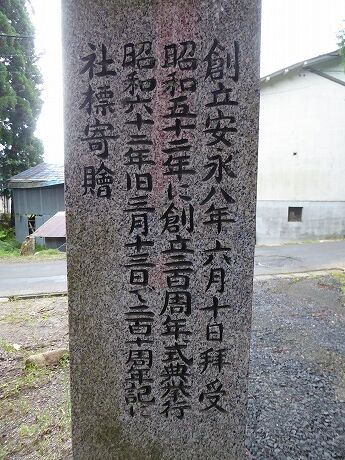 創立安永八年六月十日拝受
昭和五十二年に創立二百周年式典発行
昭和六十二年旧三月十三日で二百十周年記に
社標寄贈